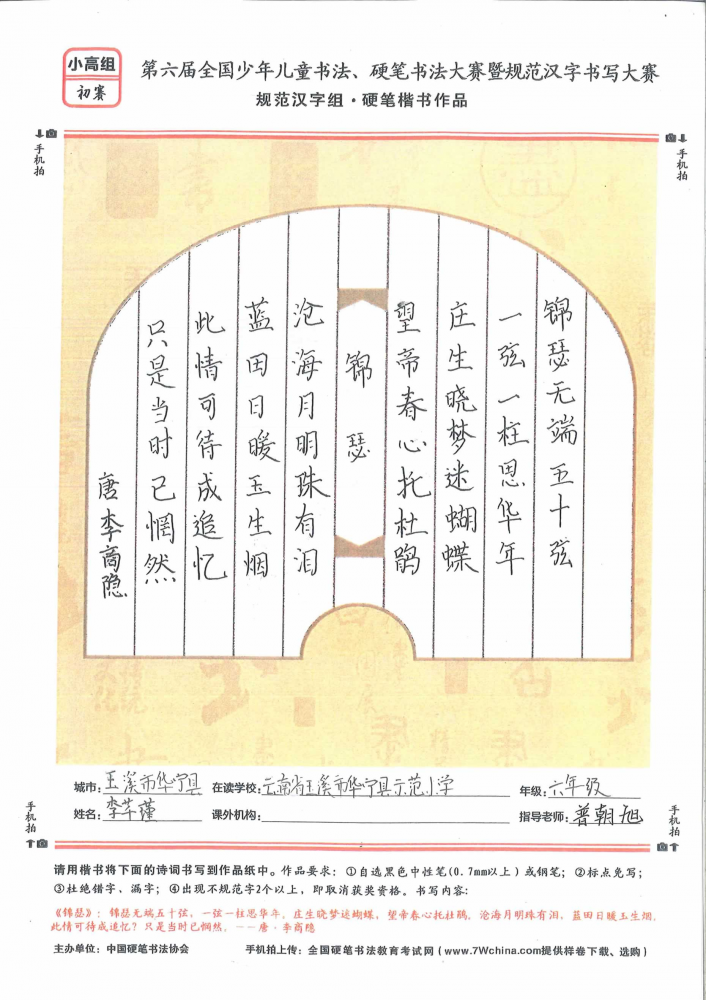 小高组
初赛
第六届全国少年儿童书法、硬笔书法大赛暨规范汉字书写大赛
规范汉字组·硬笔楷书作品
手机拍
手机拍
锦瑟无端五十弦
一弦一柱思华年
庄生晓梦迷蝴蝶
望帝春心托杜鹃
锦瑟
沧海月明珠有泪
蓝田日暖玉生烟
此情可待成追忆
只是当时已惘然
唐李商隐
城市:玉溪市华宁县 在读学校:云南省玉溪市华宁县示范小学 年级:六年级
姓名:李芊瑾 课外机构: 指导老师:普朝旭
手机拍
手机拍
请用楷书将下面的诗词书写到作品纸中。作品要求:①自选黑色中性笔(0.7mm以上)或钢笔;②标点免写;
③杜绝错字、漏字;④出现不规范字2个以上,即取消获奖资格。书写内容:
《锦瑟》:锦瑟无端五十弦,一弦一柱思华年。庄生晓梦迷蝴蝶,望帝春心托杜鹃。沧海月明珠有泪,蓝田日暖玉生烟。
此情可待成追忆?只是当时已惘然。——唐·李商隐
主办单位:中国硬笔书法协会 手机拍上传:全国硬笔书法教育考试网(www.7Wchina.com提供样卷下载、选购)